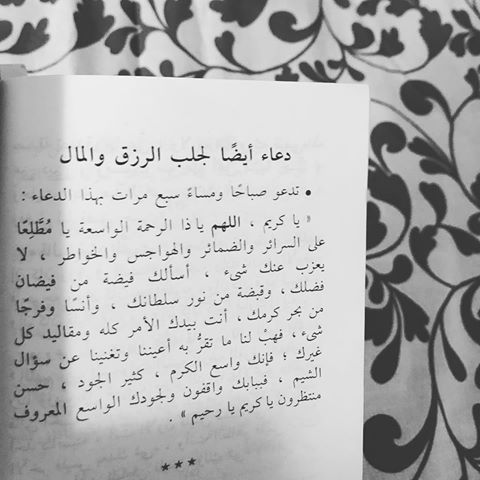 دعاء أيضًا لجلب الرزق والمال
• تدعو صباحًا ومساءً سبع مرات بهذا الدعاء :
« يا كريم ، اللهم ياذا الرحمة الواسعة يا مُطَّلِعًا
على السرائر والضمائر والهواجس والخواطر ، لا
يعزب عنك شىء ، أسألك فيضة من فيضان
فضلك ، وقبضة من نور سلطانك ، وأنسًا وفرجًا
من بحر كرمك ، أنت بيدك الأمر كله ومقاليد كل
شىء ، فهبْ لنا ما تقرُّ به أعيننا وتغنينا عن سؤال
غيرك ؛ فإنك واسع الكرم ، كثير الجود ، حسن
الشيم ، فببابك واقفون ولجودك الواسع المعروف
منتظرون يا كريم يا رحيم » .
***